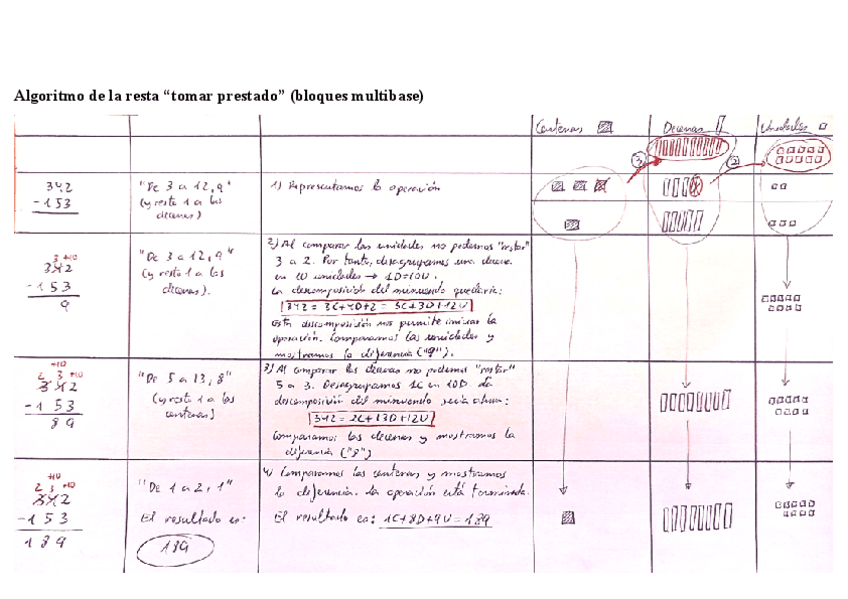 Algoritmo de la resta “tomar prestado” (bloques multibase)
Centenas Decenas Unidades
3 2
342
-153
"De 3 a 12, 9"
(y resto 1 a las
decenas)
1) Representamos la operación
3 +10
342
-153
9
"De 3 a 12, 9"
(y resto 1 a las
decenas).
2) Al comparar las unidades no podemos "restar"
3 a 2. Por tanto, desagrupamos una decena
en 10 unidades → 1D=10U.
La descomposición del minuendo quedaría:
342 = 3C+4D+2 = 3C+3D+12U
Esta descomposición nos permite iniciar la
operación. Comparamos las unidades y
mostramos la diferencia ("9").
+10
2 3 +10
342
-153
89
"De 5 a 13, 8"
(y resto 1 a las
centenas)
3) Al comparar las decenas no podemos "restar"
5 a 3. Desagrupamos 1C en 10D la
descomposición del minuendo sería ahora:
342 = 2C+13D+12U
Comparamos las decenas y mostramos la
diferencia ("8")
+10
2 3 +10
342
-153
189
"De 1 a 2, 1"
El resultado es:
189
4) Comparamos las centenas y mostramos
la diferencia. La operación está terminada.
El resultado es: 1C+8D+9U = 189